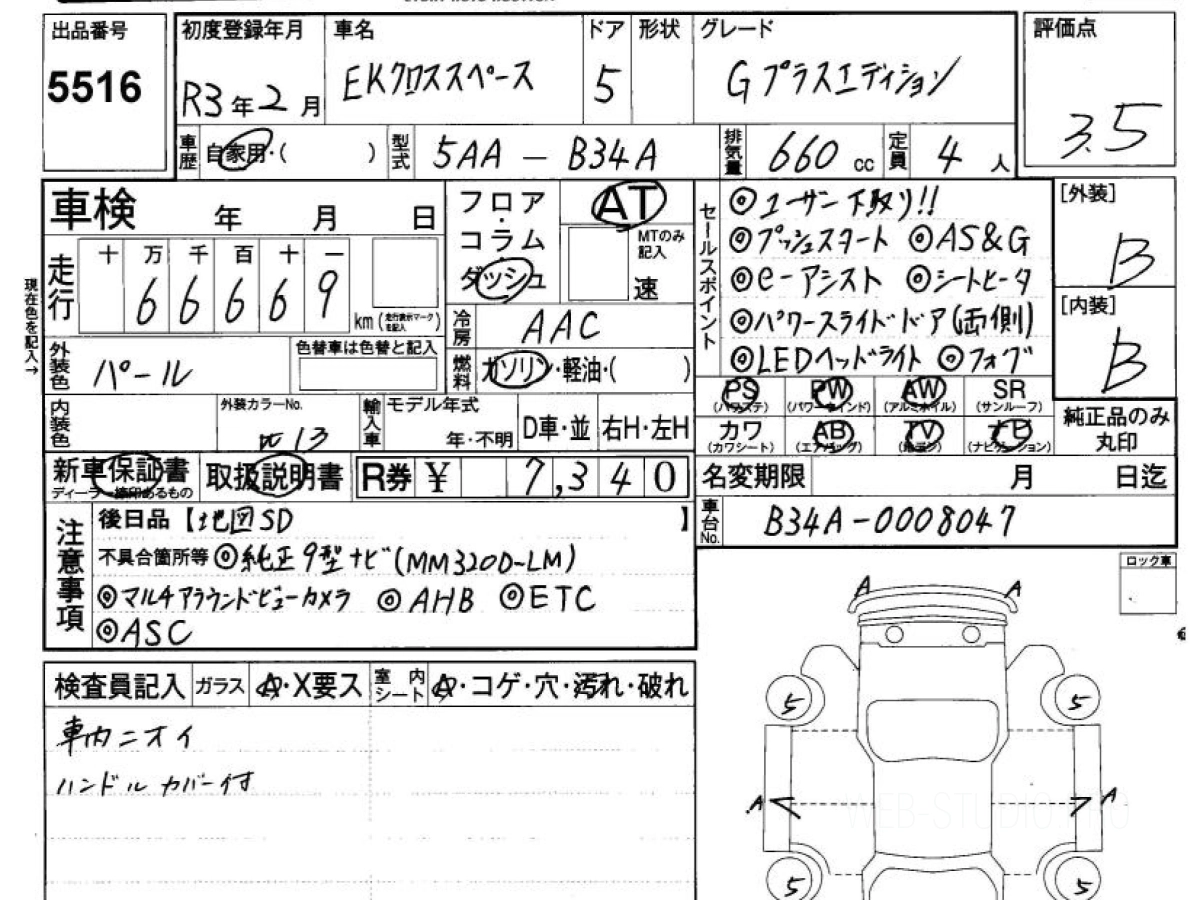 出品番号 初度登録年月 車名 ドア 形状 グレード 評価点
5516 R3年2月 EKクロススペース 5 Gプラスエディション 3.5
車歴 自家用・( ) 型式 5AA-B34A 排気量 660 cc 定員 4人
車検 年 月 日
走行 十万千百十一
66669 km (走行表示マークを記入)
現在色を記入→
フロア・コラム・ダッシュ
AT
MTのみ記入
速
冷房 AAC
燃料 ガソリン・軽油・( )
外装色 パール
色替車は色替と記入
内装色
外装カラーNo. W13
輸入車 モデル年式 年・不明 D車・並 右H・左H
セールスポイント
◎ユーザー下取り!!
◎プッシュスタート ◎AS&G
◎e-アシスト ◎シートヒータ
◎パワースライドドア(両側)
◎LEDヘッドライト ◎フォグ
[外装] B
[内装] B
PS PW AW SR
(パワステ) (パワーウインド) (アルミホイル) (サンルーフ)
カワ AB TV ナビ
(カワシート) (エアバッグ) (ナビゲーション)
純正品のみ丸印
新車保証書 取扱説明書 R券 ¥ 7,340
ディーラー捺印あるもの
名変期限 月 日迄
車台No. B34A-0008047
注意事項
後日品【地図SD 】
不具合箇所等 ◎純正9型ナビ(MM320D-LM)
◎マルチアラウンドビューカメラ ◎AHB ◎ETC
◎ASC
ロック車
検査員記入 ガラス A・X要ス 室内シート A・コゲ・穴・汚れ・破れ
車内ニオイ
ハンドルカバー付
A A
5 5
A A
5 5
WEB-STUDIO.PRO